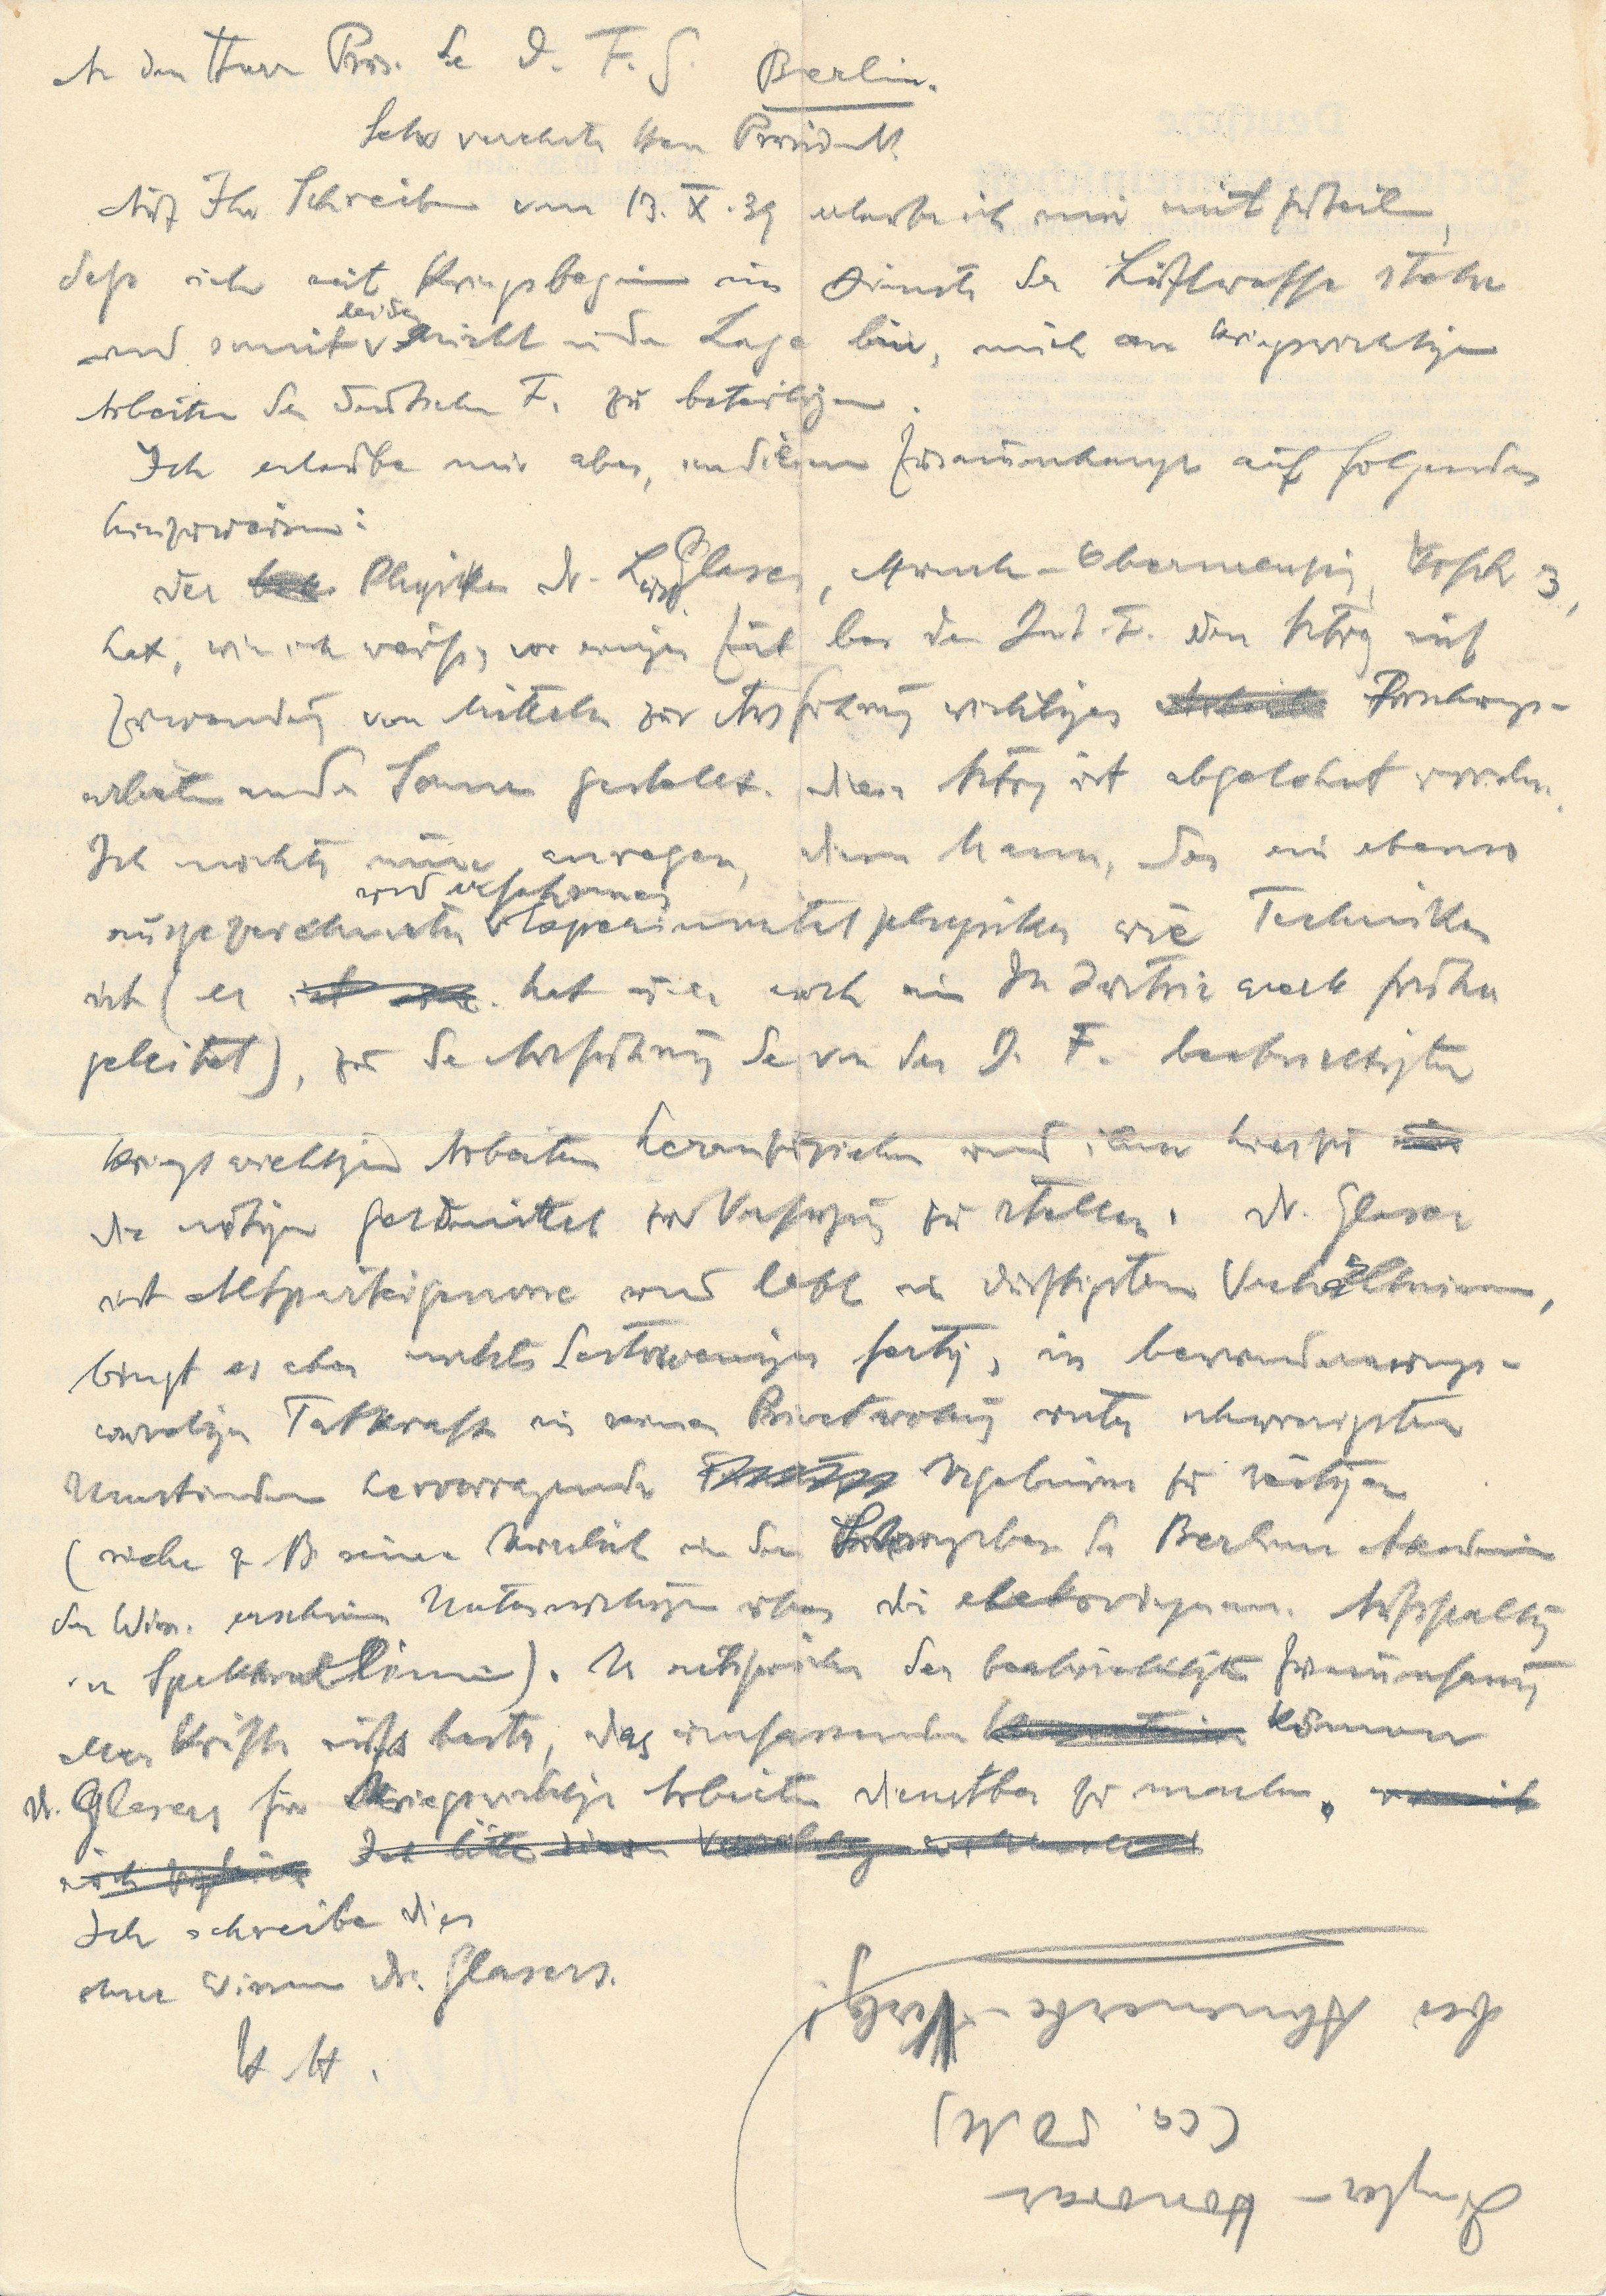 An den Herrn Präs. der D. F. G. Berlin.
Sehr verehrter Herr Präsident!
Auf Ihr Schreiben vom 13. X. 39 erlaube ich mir mitzuteilen,
daß ich mit Kriegsbeginn im Dienste der Luftwaffe stehe
und somit leider nicht in der Lage bin, mich an kriegswichtigen
Arbeiten der deutschen F. zu beteiligen.
Ich erlaube mir aber, in diesem Zusammenhange auf folgendes
hinzuweisen:
Der Physiker Dr. L. Glaser, München-Obermenzing, 3,
hat, wie ich weiß, vor einiger Zeit bei der D. F. den Antrag auf
Zuwendung von Mitteln zur Ausführung wichtiger Forschungs-
arbeiten an der Sonne gestellt. Dieser Antrag ist abgelehnt worden.
Ich möchte nun anregen, diesen Mann, der ein ebenso
ausgezeichneter und erfahrener Experimentalphysiker wie Techniker
ist (er hat auch ein Industriewerk früher
geleitet), zu der Ausführung der von der D. F. beabsichtigten
kriegswichtigen Arbeiten heranzuziehen und ihm hierzu
die nötigen Geldmittel zur Verfügung zu stellen. Dr. Glaser
ist Altparteigenosse und lebt in dürftigsten Verhältnissen,
bringt es aber nichts destoweniger fertig, in bewunderungs-
würdiger Tatkraft in seiner Privatwohnung unter schwierigsten
Umständen hervorragende Ergebnisse zu zeitigen
(siehe z B seine kürzlich in den der Berliner Akademie
der Wiss. erschienen Untersuchungen über die Aufspaltung
von Spektrallinien). Es entspräche der beabsichtigten Zusammenfassung
aller Kräfte aufs beste, das umfassende Können
Dr. Glasers für kriegswichtige Arbeiten dienstbar zu machen.
Ich schreibe dies
ohne Wissen Dr. Glasers.
H H.
bei Ahnenerbe-Verlg!
(ca. 50 M)
Honorar